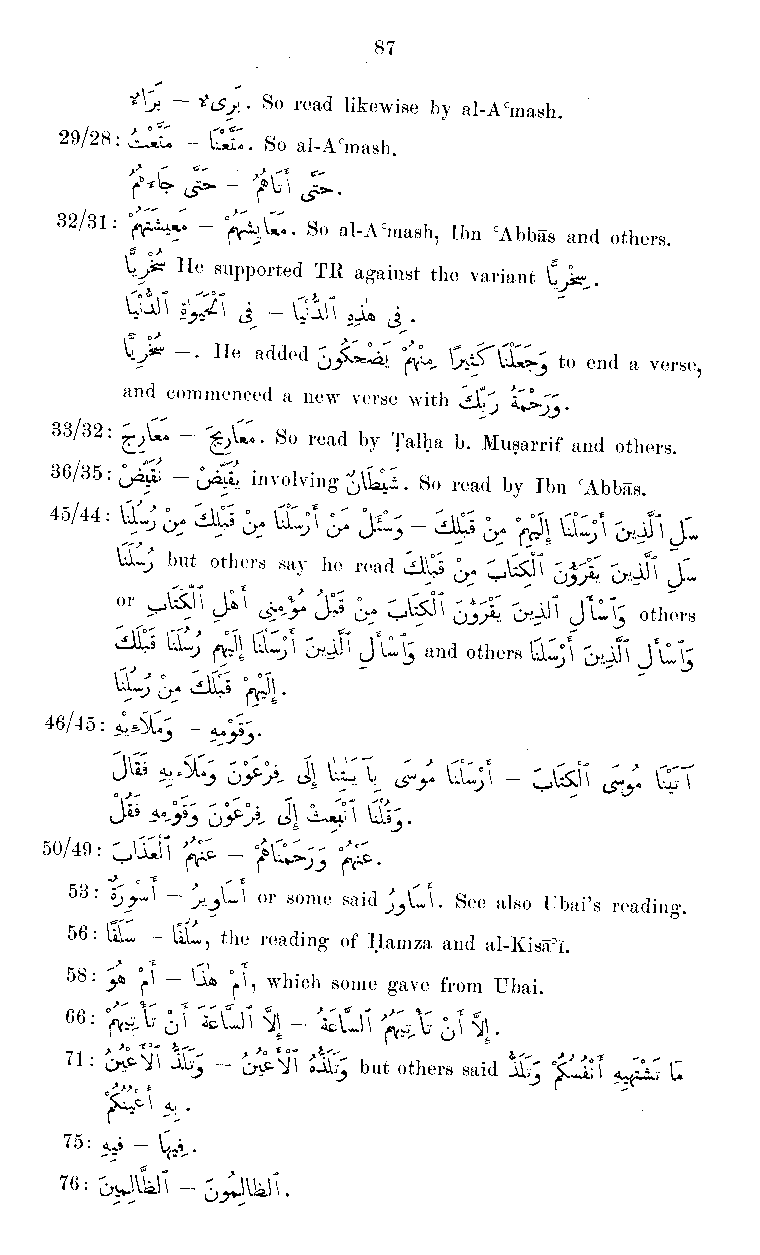 87
بَرَاءٌ — بَرِىءٌ. So read likewise by al-Aʿmash.
29/28: مَتَّعْتُ — مَتَّعْنَا. So al-Aʿmash.
حَتَّى جَاءَهُمْ — حَتَّى أَتَاهُمْ.
32/31: مَعِيشَتَهُمْ — مَعَايِشَهُمْ. So al-Aʿmash, Ibn ʿAbbās and others.
سُخْرِيًّا He supported TR against the variant سِخْرِيًّا.
فِى ٱلْحَيَوٰةِ ٱلدُّنْيَا — فِى هٰذِهِ ٱلدُّنْيَا.
سُخْرِيًّا —. He added وَجَعَلْنَا كَثِيرًا مِنْهُمْ يَضْحَكُونَ to end a verse,
and commenced a new verse with وَرَحْمَةُ رَبِّكَ.
33/32: مَعَارِجَ — مَعَارِيجَ. So read by Ṭalḥa b. Muṣarrif and others.
36/35: نُقَيِّضْ — يُقَيَّضْ involving شَيْطَانٌ. So read by Ibn ʿAbbās.
45/44: وَسْئَلْ مَنْ أَرْسَلْنَا مِنْ قَبْلِكَ مِنْ رُسُلِنَا — سَلِ ٱلَّذِينَ أَرْسَلْنَا إِلَيْهِمْ مِنْ قَبْلِكَ
رُسُلَنَا but others say he read سَلِ ٱلَّذِينَ يَقْرَؤُنَ ٱلْكِتَابَ مِنْ قَبْلِكَ
or وَٱسْأَلِ ٱلَّذِينَ يَقْرَؤُنَ ٱلْكِتَابَ مِنْ قَبْلُ مُؤْمِنِى أَهْلِ ٱلْكِتَابِ others
وَٱسْأَلِ ٱلَّذِينَ أَرْسَلْنَا إِلَيْهِمْ رُسُلَنَا قَبْلَكَ and others وَٱسْأَلِ ٱلَّذِينَ أَرْسَلْنَا
إِلَيْهِمْ قَبْلَكَ مِنْ رُسُلِنَا.
46/45: وَمَلَاءِيْهِ — وَقَوْمِهِ.
أَرْسَلْنَا مُوسَى بِآيَتِنَا إِلَى فِرْعَوْنَ وَمَلَاءِيْهِ فَقَالَ — آتَيْنَا مُوسَى ٱلْكِتَابَ
وَقُلْنَا ٱنْبَعِثْ إِلَى فِرْعَوْنَ وَقَوْمِهِ فَقُلْ.
50/49: عَنْهُمُ ٱلْعَذَابَ — عَنْهُمْ وَرَحِمْنَاهُمْ.
53: أَسْوِرَةٌ — أَسَاوِيرُ or some said أَسَاوِرُ. See also Ubai's reading.
56: سَلَفًا — سُلُفًا, the reading of Ḥamza and al-Kisāʾī.
58: أَمْ هُوَ — أَمْ هٰذَا, which some gave from Ubai.
66: إِلَّا ٱلسَّاعَةَ أَنْ تَأْتِيَهُمْ — إِلَّا أَنْ تَأْتِيَهُمُ ٱلسَّاعَةُ.
71: وَتَلَذُّ ٱلْأَعْيُنُ — وَتَلَذُّهُ ٱلْأَعْيُنُ but others said مَا تَشْتَهِيهِ أَنْفُسُكُمْ وَتَلَذُّ
بِهِ أَعْيُنُكُمْ.
75: فِيهِ — فِيهَا.
76: ٱلظَّالِمِينَ — ٱلظَّالِمُونَ.